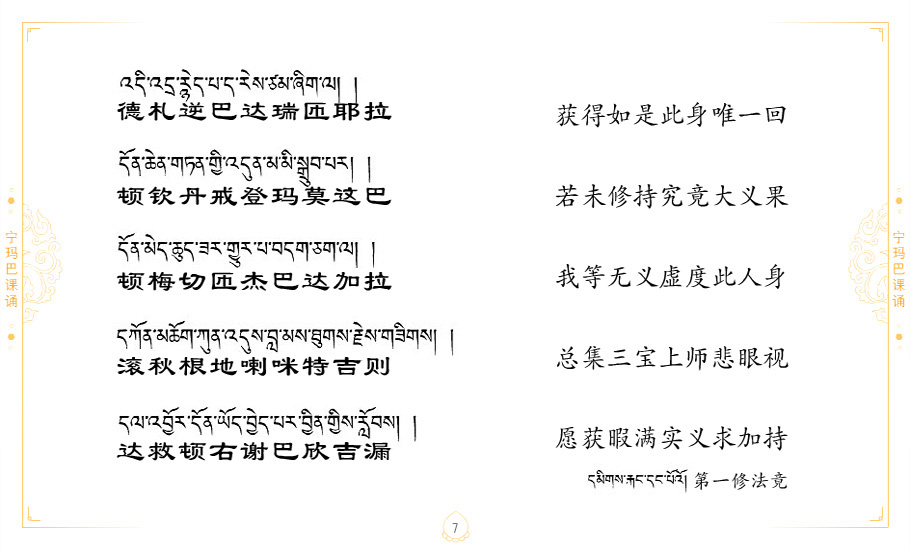 འདི་འདྲ་རྙེད་པ་ད་རེས་ཙམ་ཞིག་ལ། །
德札逆巴达瑞匝耶拉
获得如是此身唯一回
དོན་ཆེན་གཏན་གྱི་འདུན་མ་མི་སྒྲུབ་པར། །
顿钦丹戒登玛莫这巴
若未修持究竟大义果
དོན་མེད་ཆུད་ཟར་གྱུར་པ་བདག་ཅག་ལ། །
顿梅切匝杰巴达加拉
我等无义虚度此人身
དཀོན་མཆོག་ཀུན་འདུས་བླ་མས་ཐུགས་རྗེས་གཟིགས། །
滚秋根地喇咪特吉则
总集三宝上师悲眼视
དལ་འབྱོར་དོན་ཡོད་བྱེད་པར་བྱིན་གྱིས་རློབས། །
达救顿右谢巴欣吉漏
愿获暇满实义求加持
དམིགས་རྐང་དང་པོའོ། 第一修法竟
宁玛巴课诵
宁玛巴课诵
7